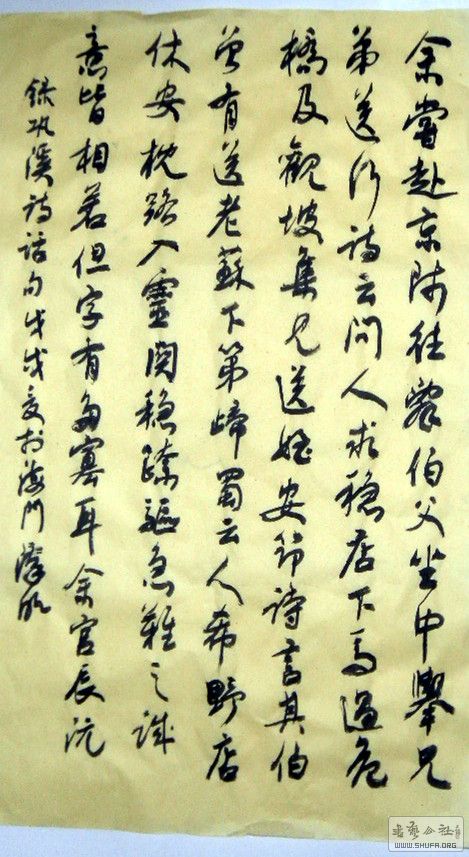 余嘗赴京師往辭伯父坐中舉兄
弟送行詩云問人求穩店下馬過危
橋及觀坡集兄送姪安節詩言其伯
曾有送老蘇下第歸蜀云人希野店
休安枕路入靈關穩跨驢急難之誠
意皆相若但字有多寡耳余官辰沅
錄䂬溪詩話句戊戌夏於海門
書藝公社
WWW.SHUFA.ORG